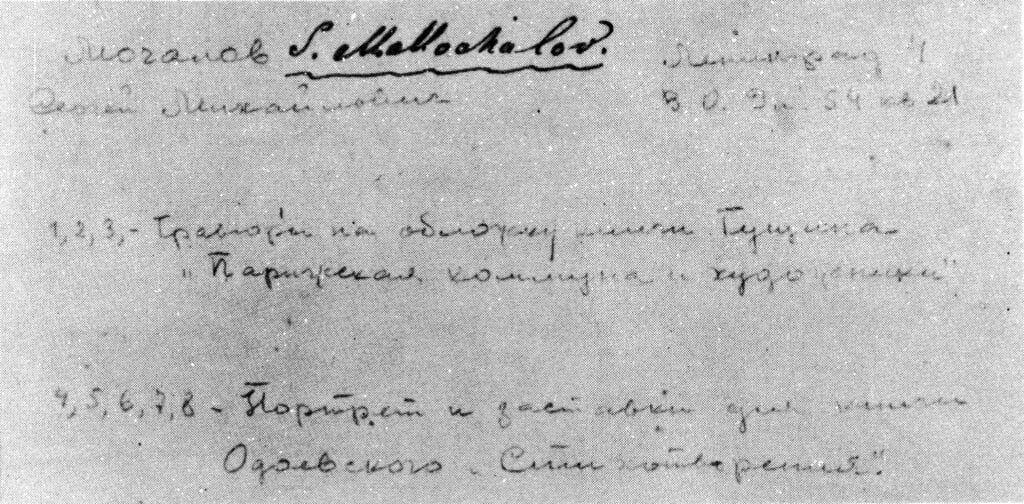 Мочалов S. M. Mochalov. Ленинград 4
Сергей Михайлович В О. 54 кв 21
1, 2, 3, - Гравюры на обложку книги Гущина
„Парижская коммуна и художники"
4, 5, 6, 7, 8 - Портрет и заставки для книги
Одоевского „Стихотворения".